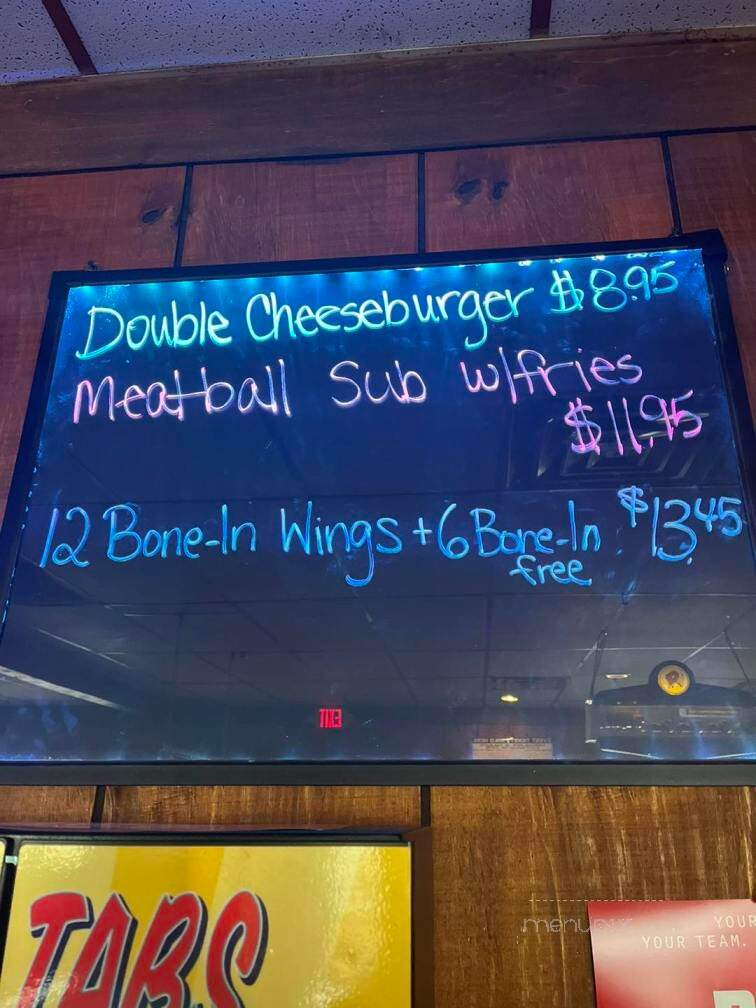 Double Cheeseburger $8.95
Meatball Sub w/fries
$11.95
12 Bone-In Wings + 6 Bone-In $13.45
free
TABS
menupix
YOUR
YOUR TEAM.